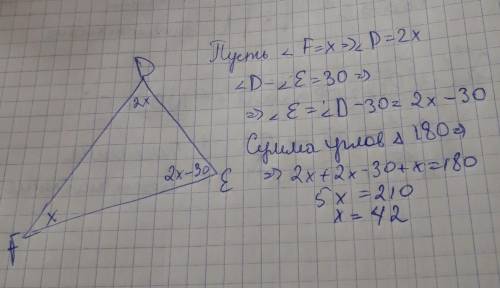 D
2x
2x-30
Ɛ
x
F
Пусть ∠F=x⇒∠D=2x
∠D-∠Ɛ=30⇒
⇒∠Ɛ=∠D-30=2x-30
Сумма углов Δ 180⇒
⇒2x+2x-30+x=180
5x=210
x=42